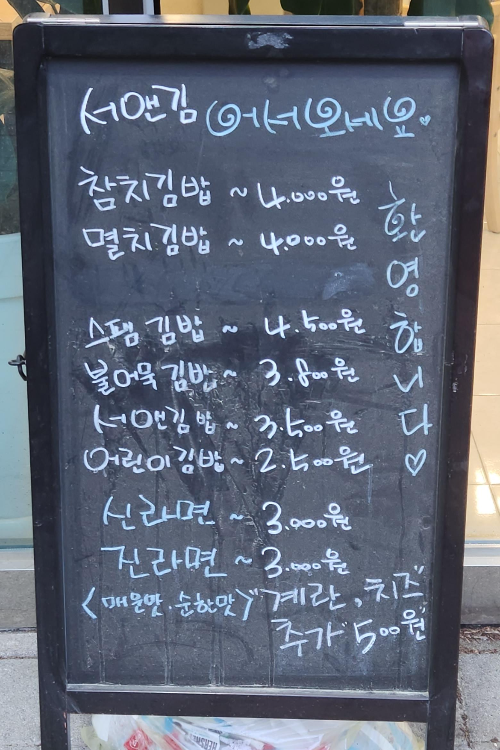 서앤김 어서오세요
참치김밥 ~ 4.000원
멸치김밥 ~ 4.000원
스팸김밥 ~ 4.500원
불어묵김밥 ~ 3.800원
서앤김밥 ~ 3.500원
어린이김밥 ~ 2.500원
신라면 ~ 3.000원
진라면 ~ 3.000원
<매운맛.순한맛> "계란, 치즈"
추가 500원
환영합니다♡